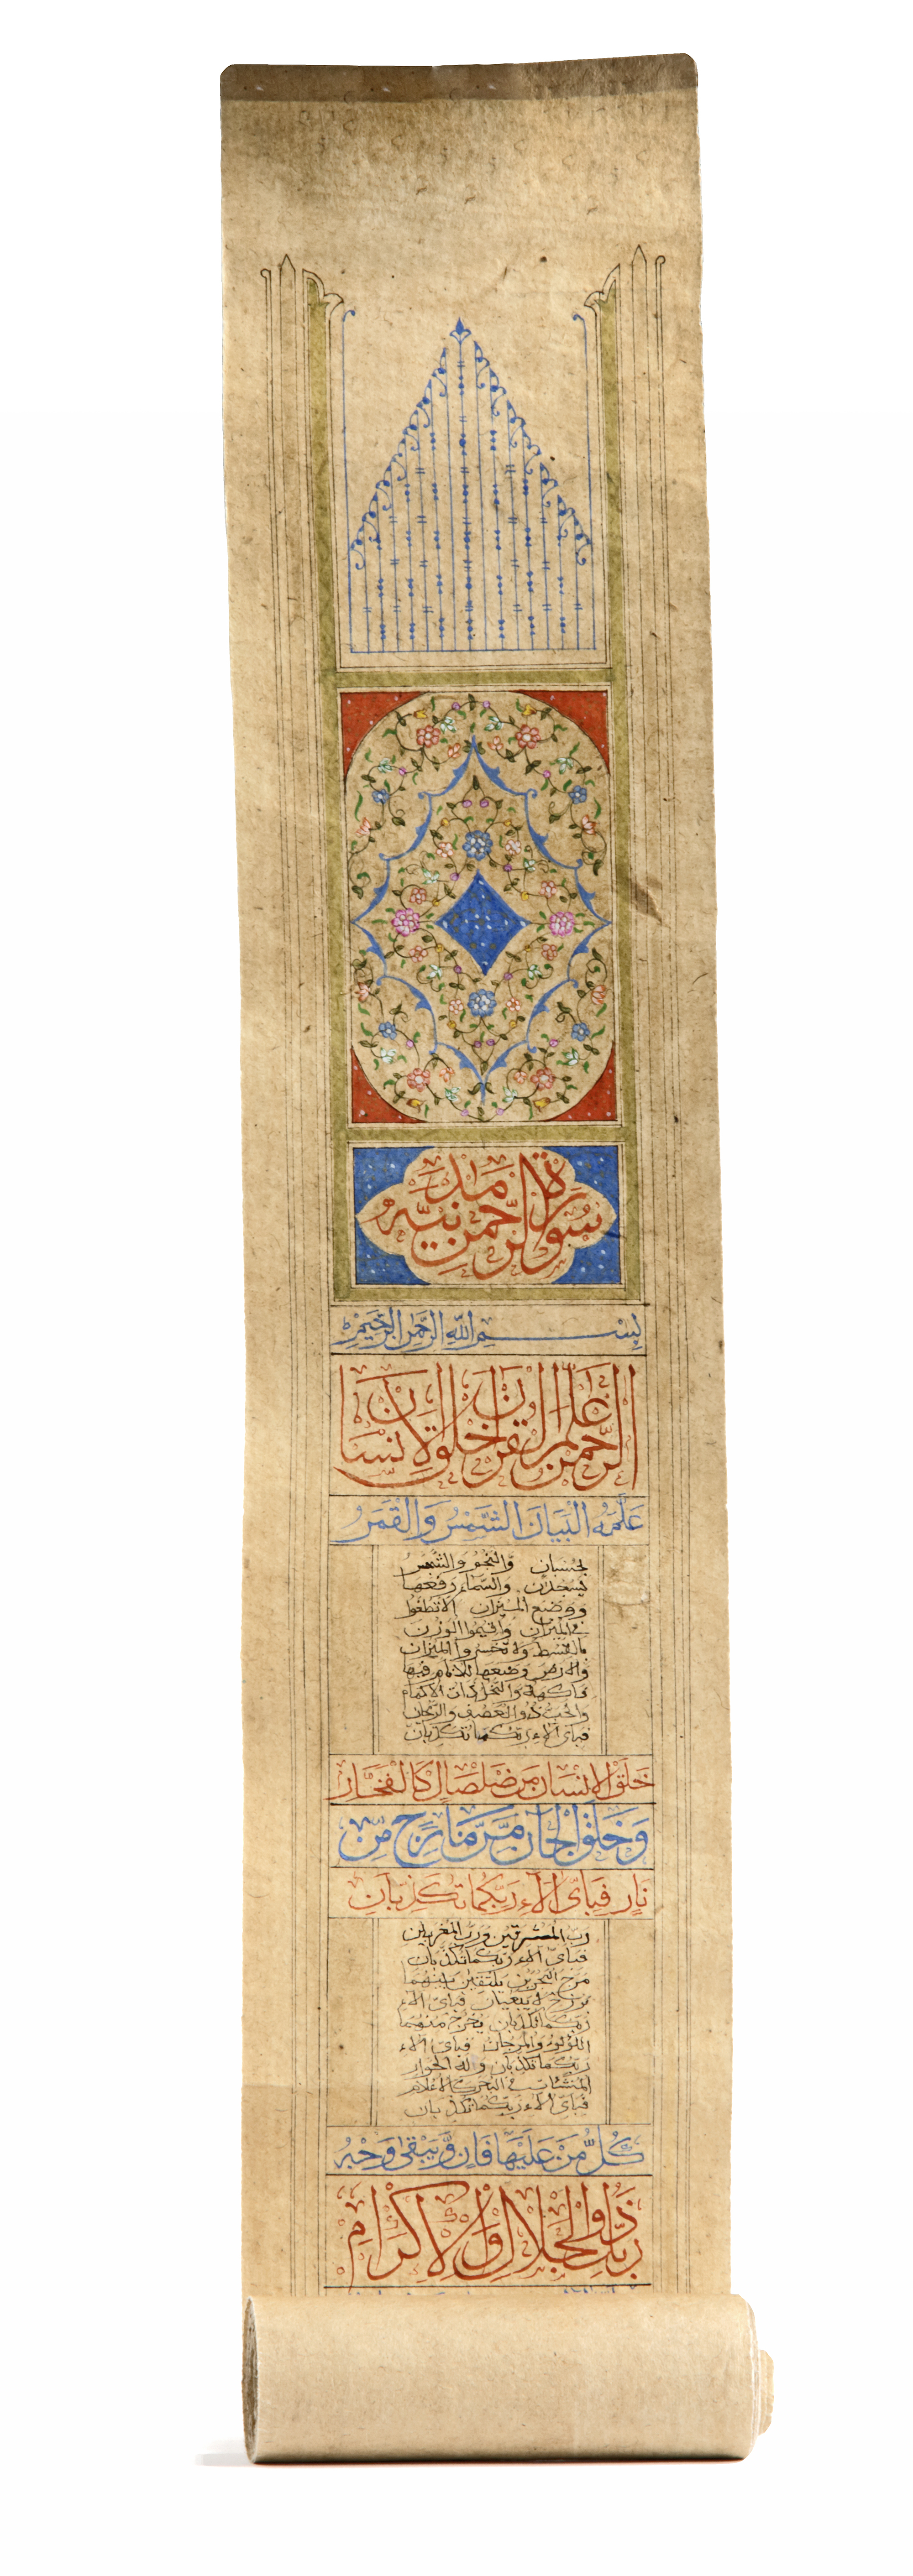 سورة الرحمن مدنية
بسم الله الرحمن الرحيم
الرحمن علم القرآن خلق الإنسان
علمه البيان الشمس والقمر
بحسبان والنجم والشجر
يسجدان والسماء رفعها
ووضع الميزان ألا تطغوا
في الميزان وأقيموا الوزن
بالقسط ولا تخسروا الميزان
والأرض وضعها للأنام فيها
فاكهة والنخل ذات الأكمام
والحب ذو العصف والريحان
فبأي آلاء ربكما تكذبان
خَلَقَ الإنسان مِن صَلصَالٍ كَالفَخَّارِ
وَخَلَقَ الجَانَّ مِن مَّارِجٍ مِّن
نَّارٍ فَبِأَيِّ آلَاءِ رَبِّكُمَا تُكَذِّبَانِ
رب المشرقين ورب المغربين
فبأي آلاء ربكما تكذبان
مرج البحرين يلتقيان بينهما
برزخ لا يبغيان فبأي آلاء
ربكما تكذبان يخرج منهما
اللؤلؤ والمرجان فبأي آلاء
ربكما تكذبان وله الجوار
المنشئات في البحر كالأعلام
فبأي آلاء ربكما تكذبان
كُلُّ مَنْ عَلَيْهَا فَانٍ وَّيَبْقَى وَجْهُ
رَبِّكَ ذُو الْجَلَالِ وَالْإِكْرَامِ